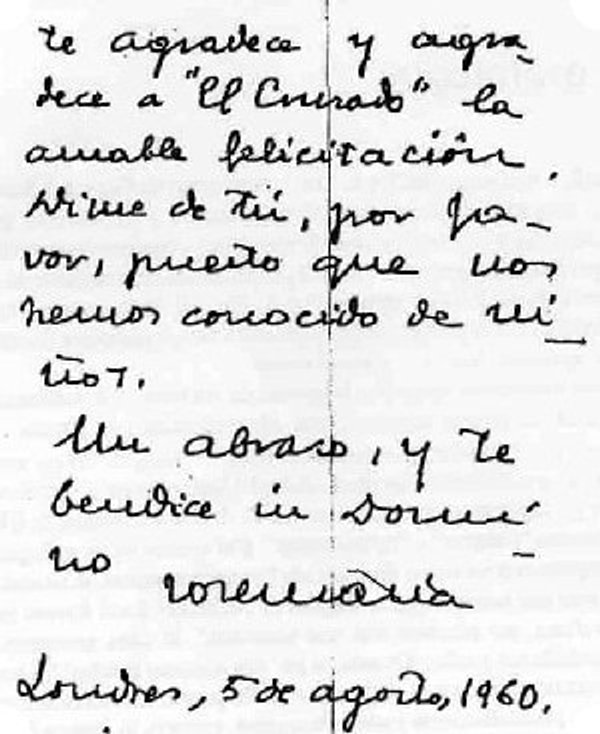 te agradece y agra-
dece a "El Cruzado" la
amable felicitación.
Dime de tú, por fa-
vor, puesto que nos
hemos conocido de ni-
ños.
Un abrazo, y te
bendice in Domi-
no
Josemaría
Londres, 5 de agosto, 1960.